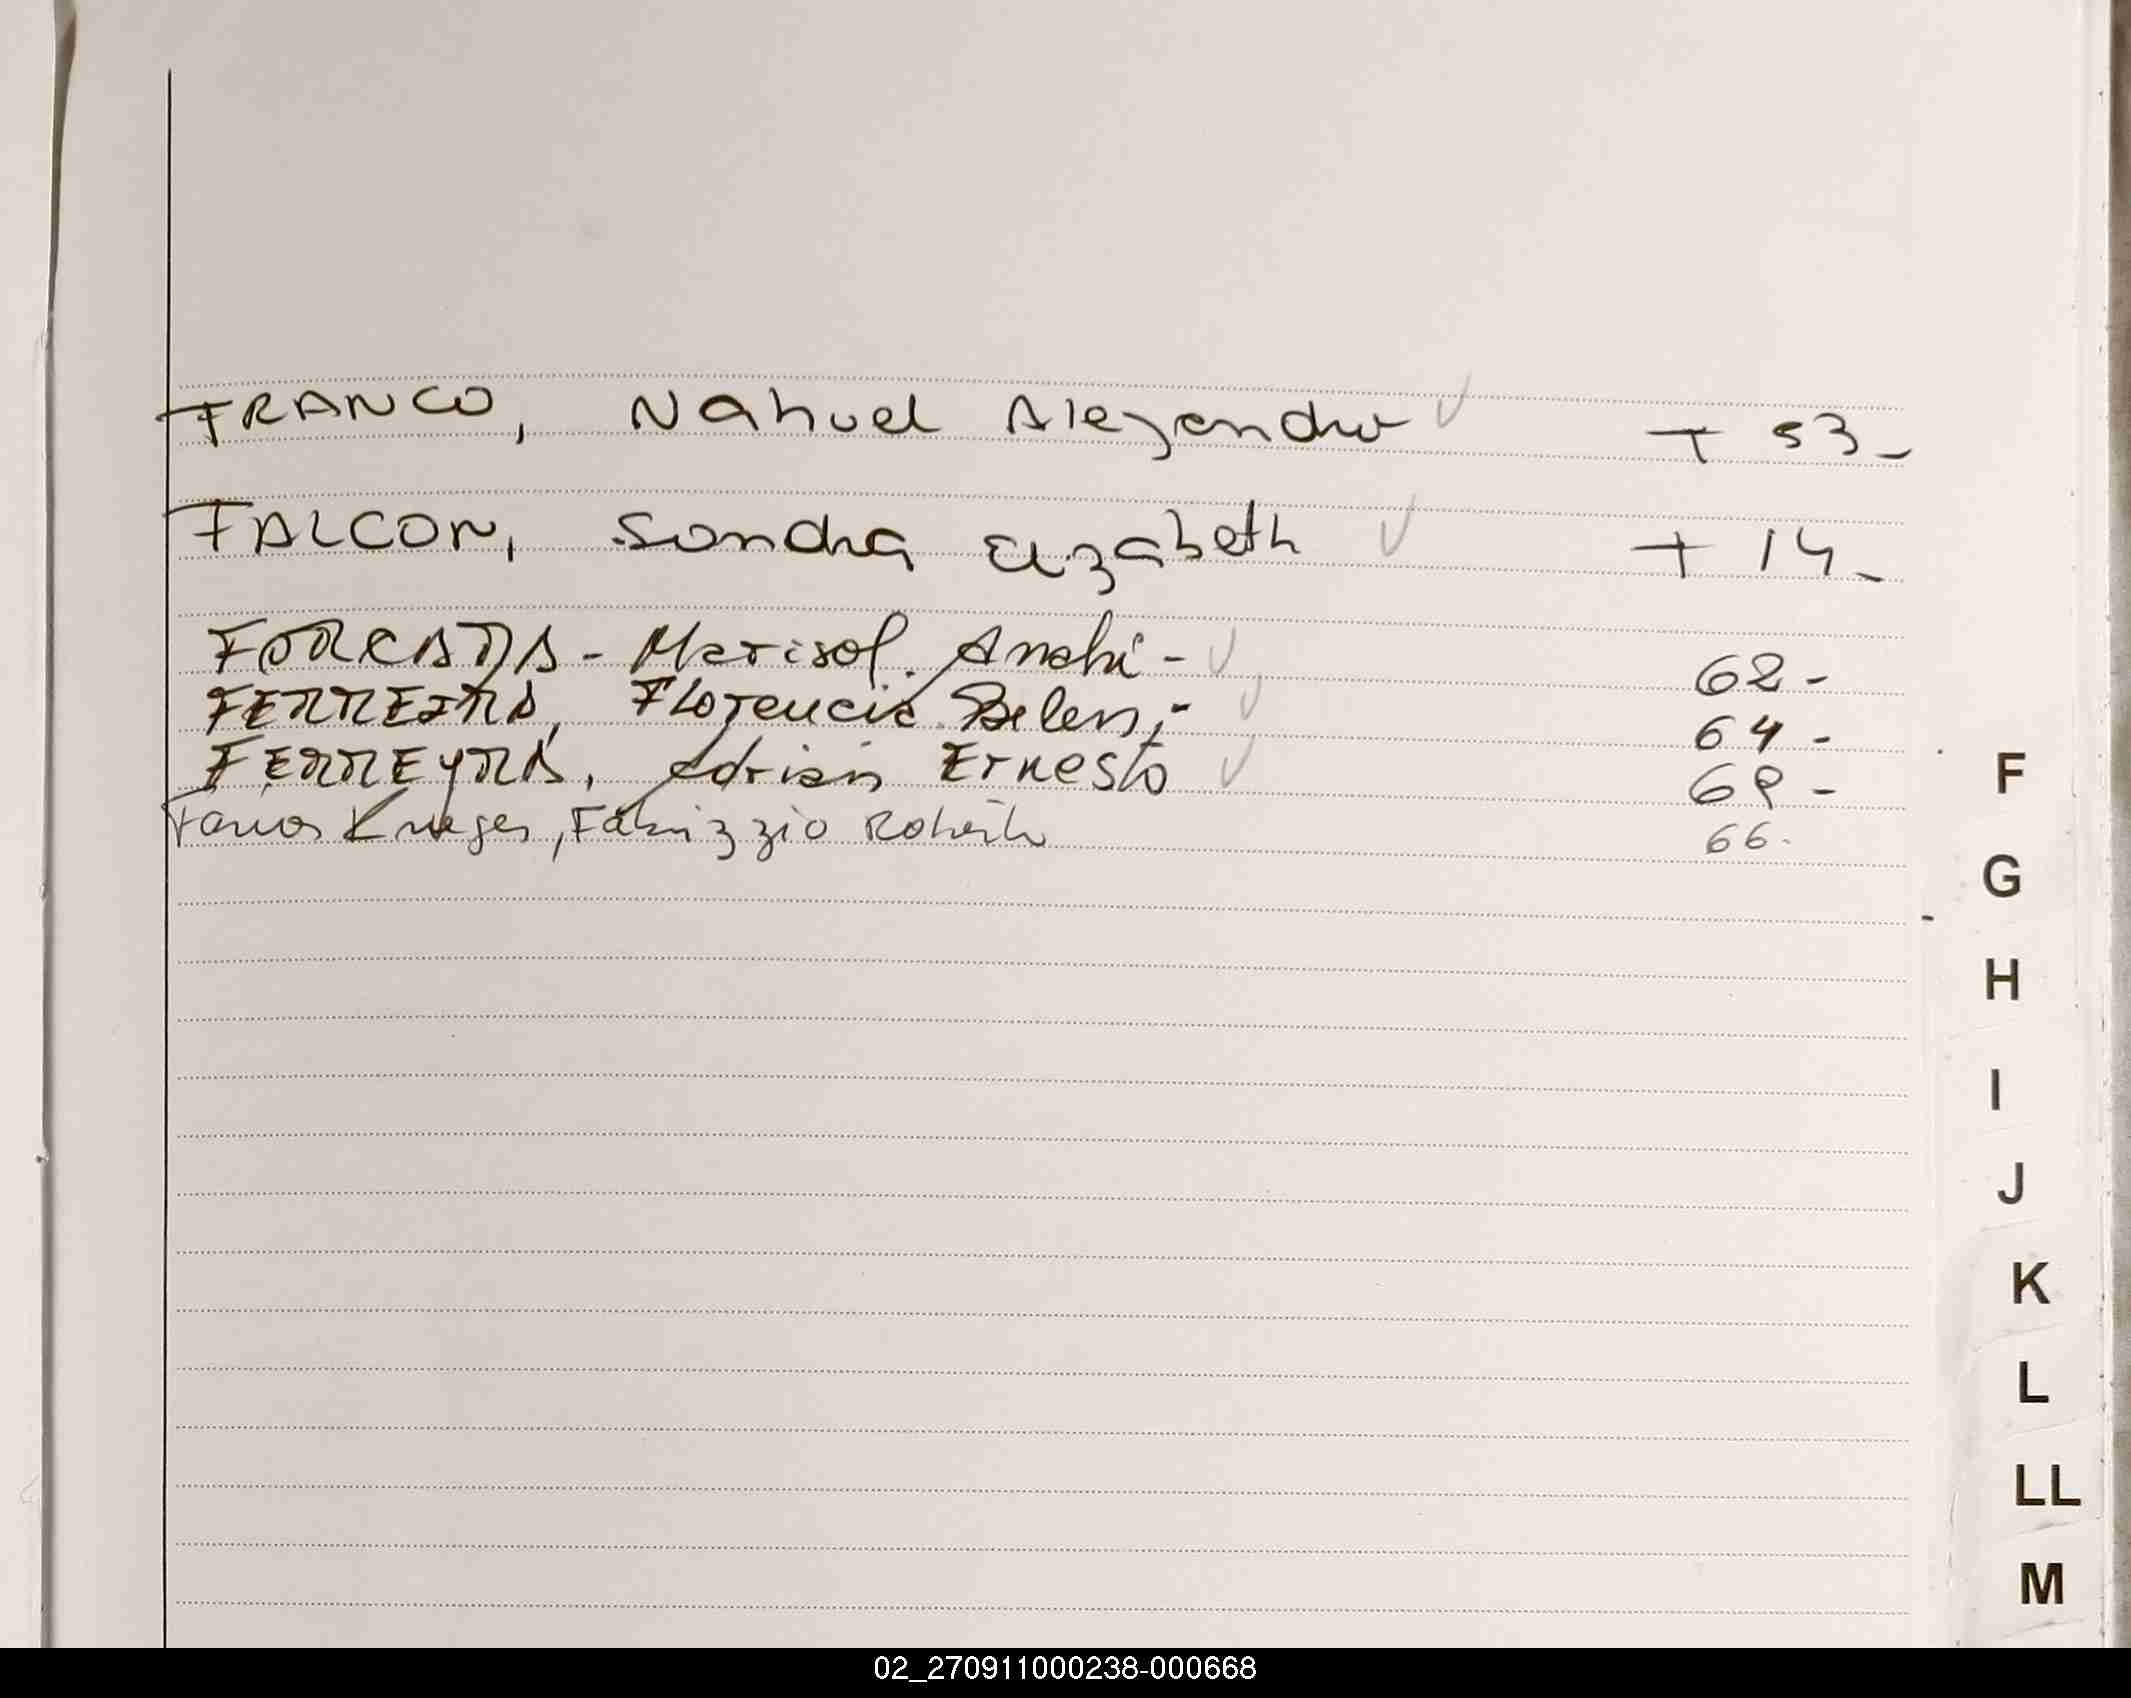 FRANCO, Nahuel Alejandro ✓ T 53_
FALCON, Sandra Elizabeth ✓ T 14_
FORCADA - Marisol Anahi - ✓ 62 -
FERREIRA, Florencia Belen, - ✓ 64 -
FERREYRA, Adrian Ernesto ✓ 69 -
Farias Krueger, Fabrizzio Roberto 66.
F
G
H
I
J
K
L
LL
M
02_270911000238-000668